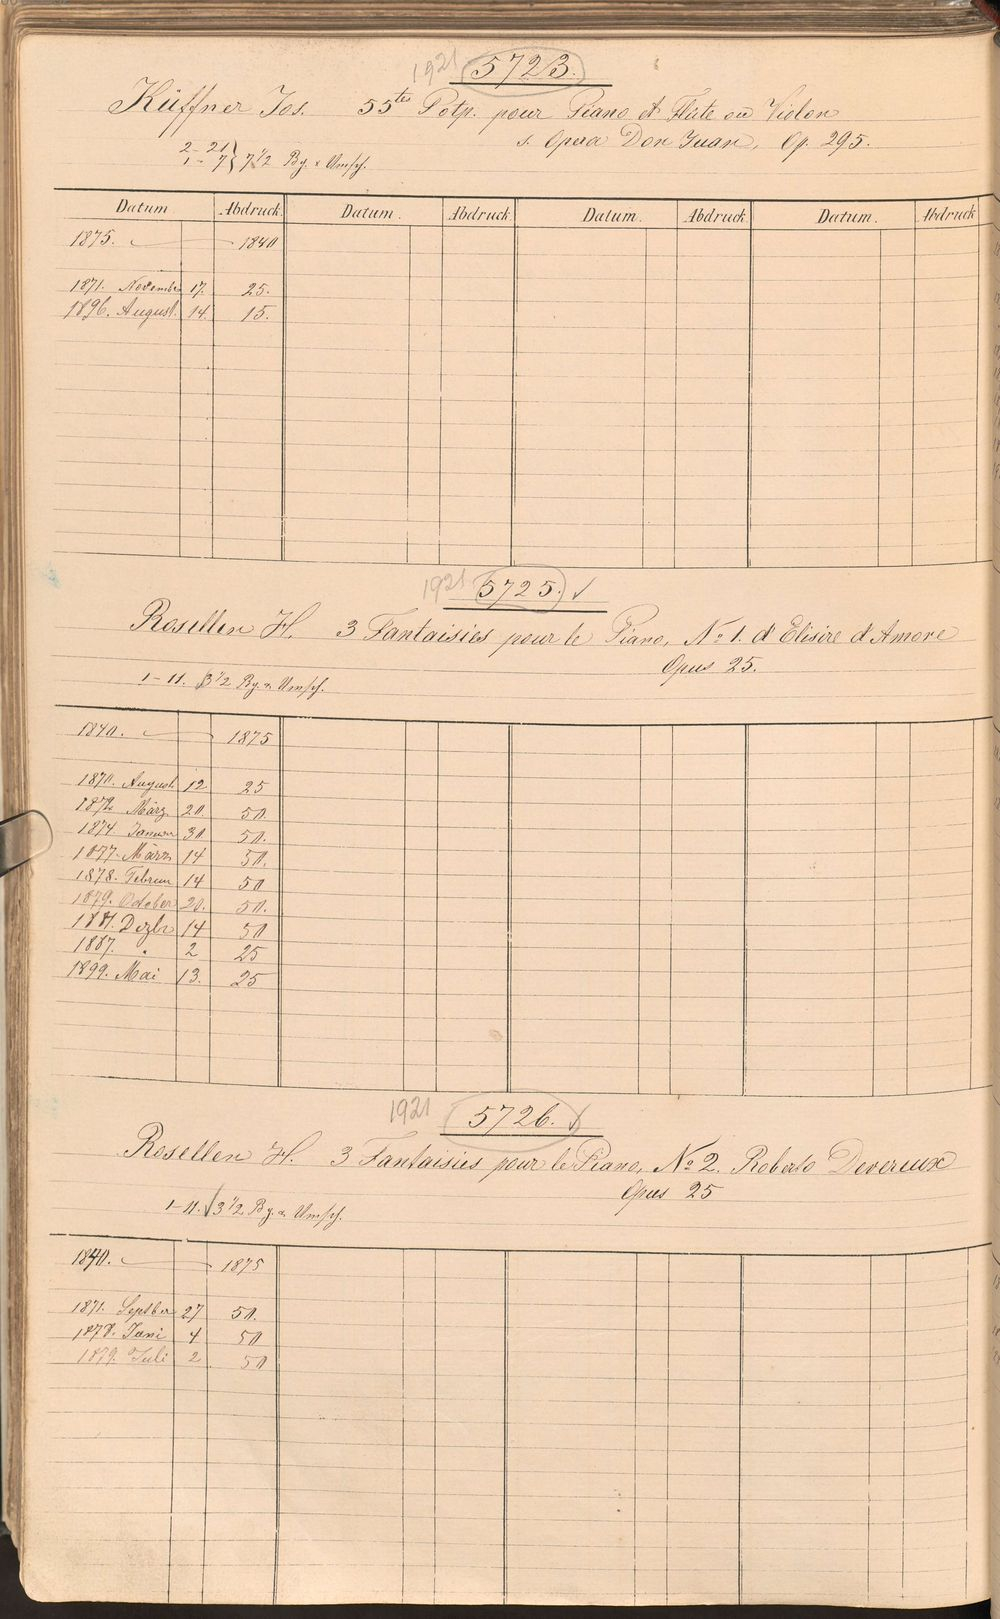 1921 5723.
Küffner Jos. 55tes Potp. pour Piano et Flûte ou Violon
s. Opera Don Juan, Op. 295.
2 - 21
1 - 7 } 7 1/2 Bg. & Umsch.
Datum Abdruck. Datum. Abdruck Datum. Abdruck Datum. Abdruck
1875. 1840
1871. November 17. 25.
1896. August. 14. 15.
1921 5725. √
Rosellen H. 3 Fantaisies pour le Piano, No 1. d'Elisire d'Amore
Opus 25.
1-11. 3 1/2 Bg. & Umsch.
1840. 1875
1870. August. 12 25
1872 März 20. 50.
1874. Januar 30. 50.
1877. März 14 50.
1878. Februar 14 50
1879. October 20. 50.
1881. Dezbr 14 50
1887. " 2 25
1899. Mai 13. 25
1921 5726. √
Rosellen H. 3 Fantaisies pour le Piano, No 2. Roberto Devereux
Opus 25
1-11. 3 1/2 Bg. & Umsch.
1840. 1875
1871. Septber 27 50.
1878. Juni 4 50
1879. Juli 2 50